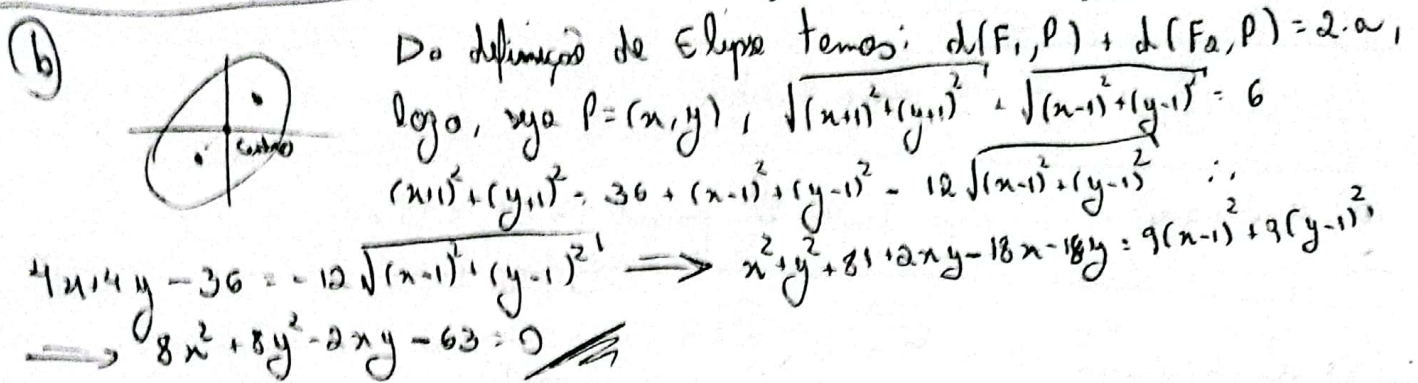 (b) Da definição de Elipse temos: d(F₁,P) + d(F₂,P) = 2·a,
logo, seja P=(x,y), √((x+1)²+(y+1)²) + √((x-1)²+(y-1)²) = 6
(x+1)²+(y+1)² = 36 + (x-1)²+(y-1)² - 12√((x-1)²+(y-1)²) ∴
4x+4y-36 = -12√((x-1)²+(y-1)²) ⟹ x²+y²+81+2xy-18x-18y = 9(x-1)²+9(y-1)²,
⟹ 8x²+8y²-2xy-63=0